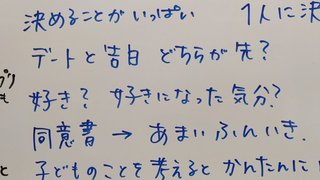 決めることがいっぱい 1人に決
デートと告白 どちらが先？
好き？ 好きになった気分？
同意書 → あまいふんいき.
子どものことを考えると かんたんに